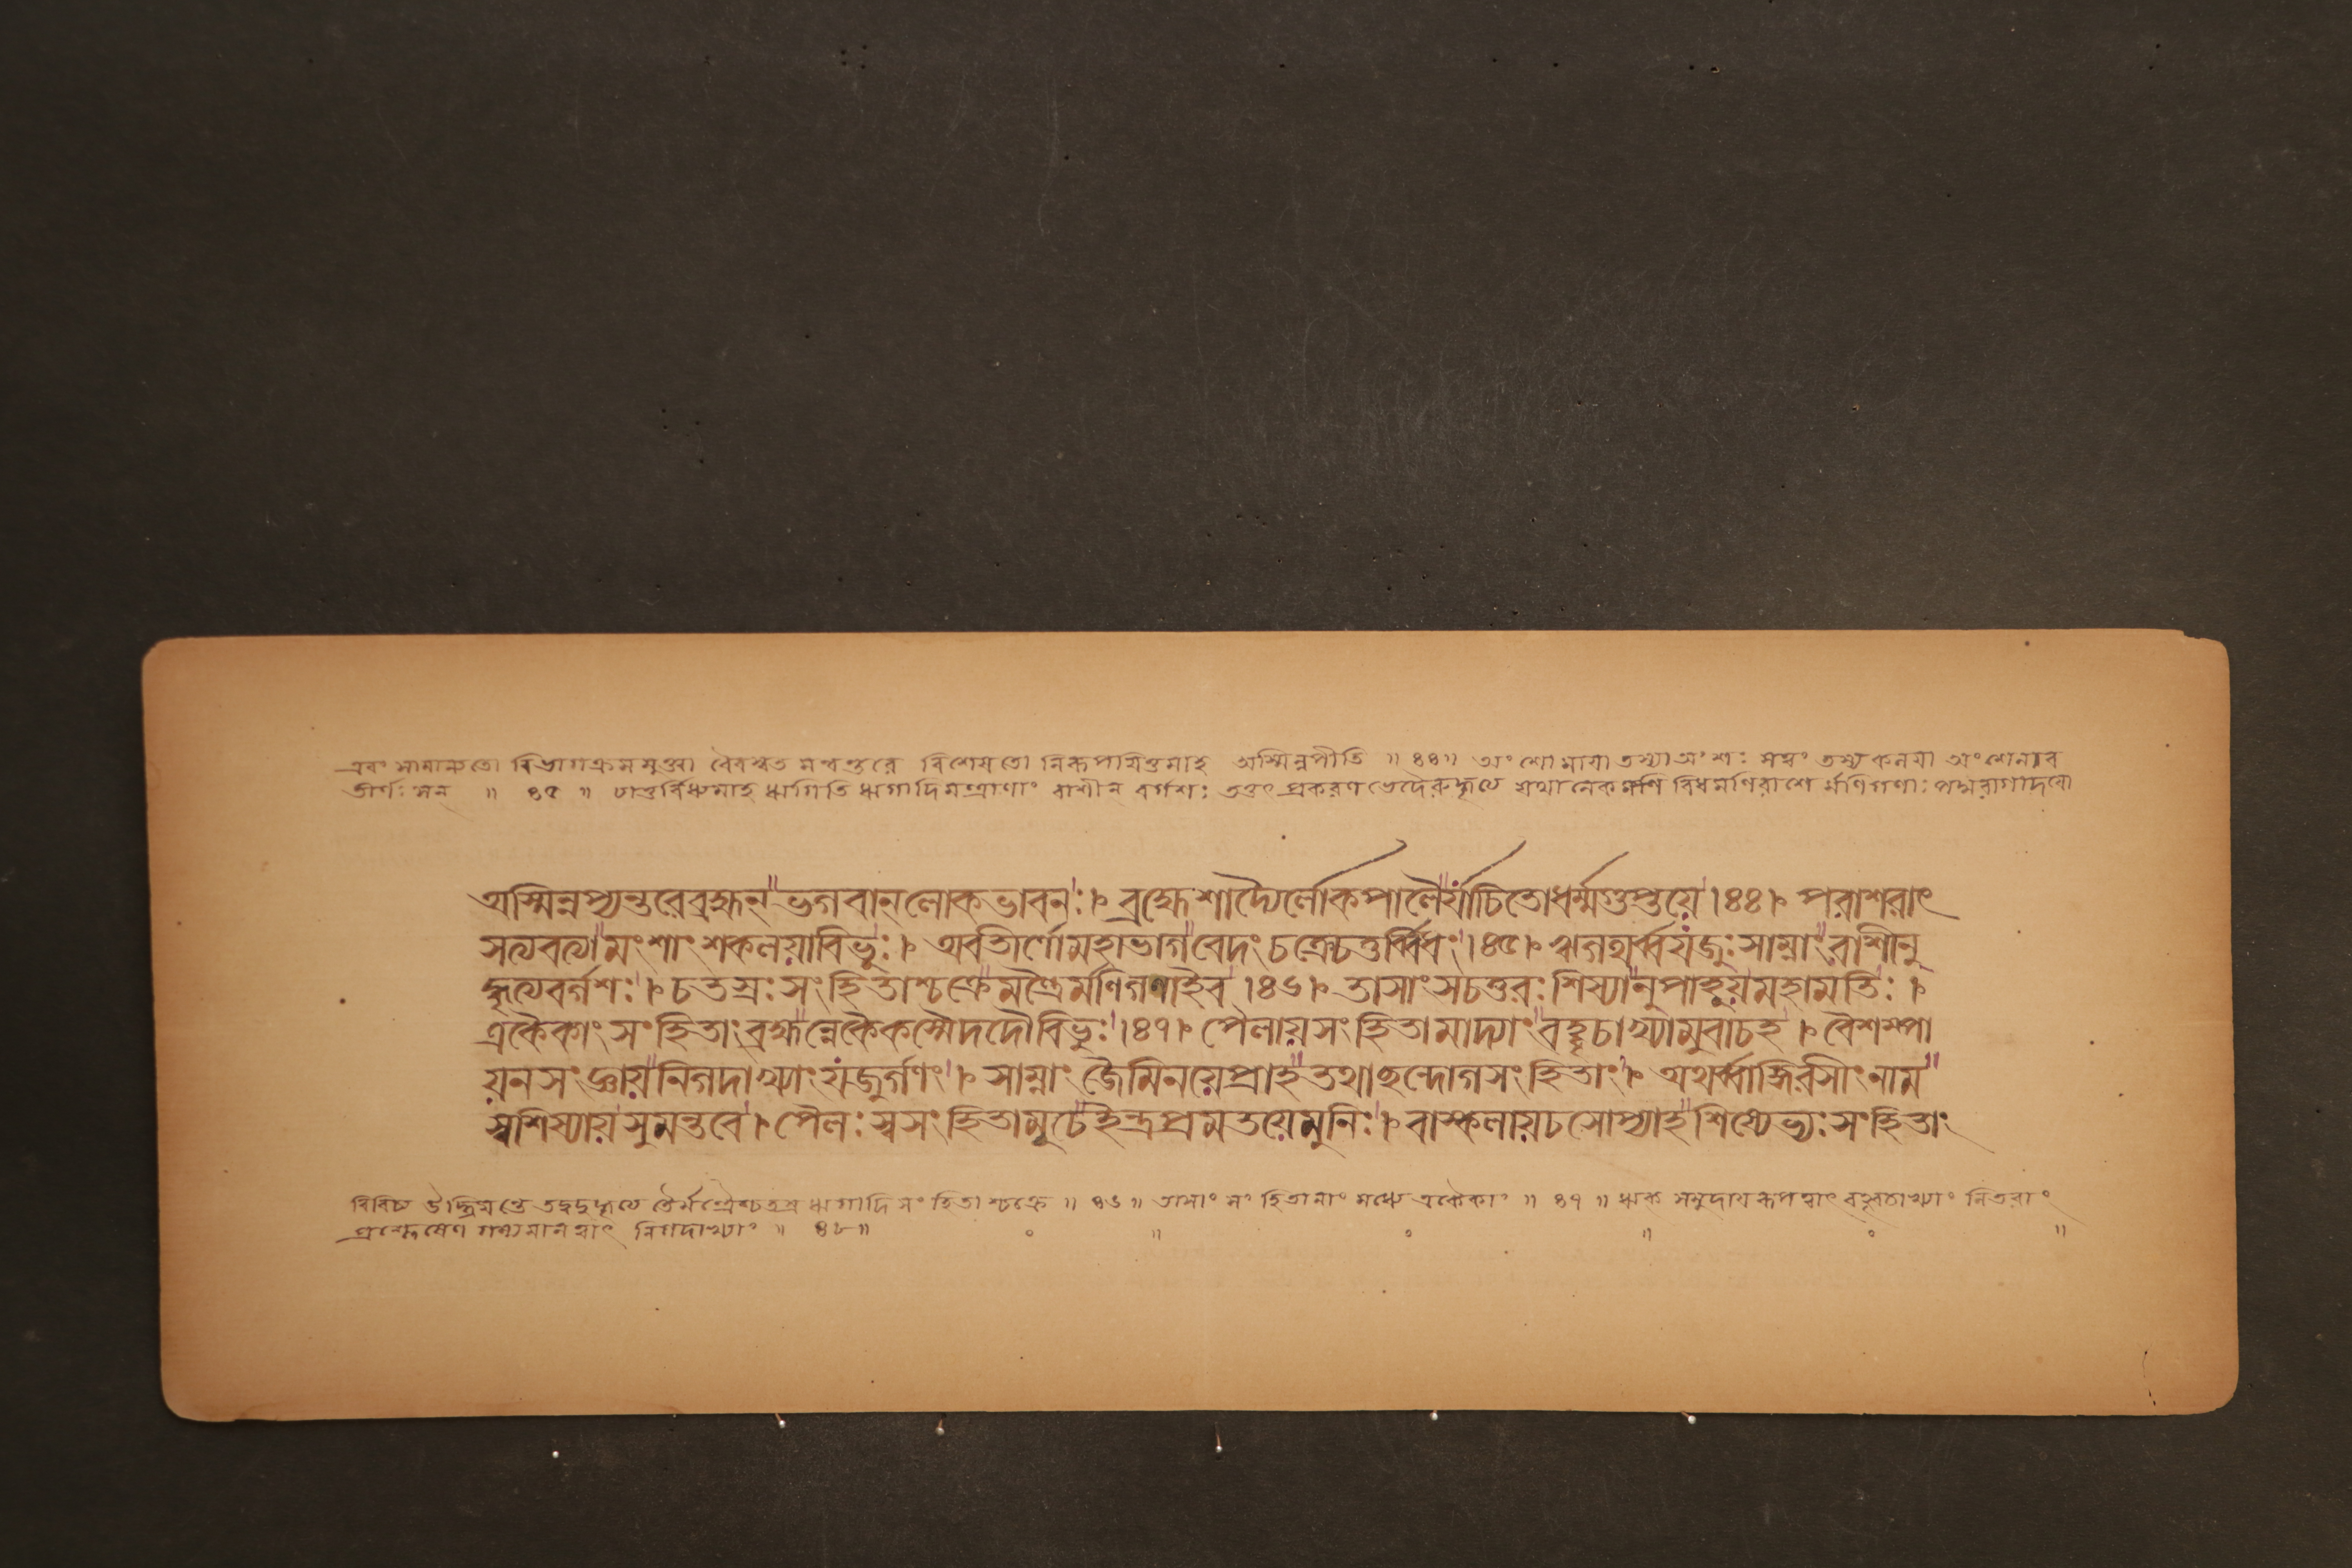 এবং সামান্যতো বিভাগক্রমমুক্ত্বা বৈবস্বত মন্বন্তরে বিশেষতো নিরূপযিতুমাহ অস্মিন্নপীতি ॥ ৪৪॥ অংশো মাযা তস্যা অংশঃ সত্বং তস্য কলযা অংশেনাব
তীর্ণঃ সন্ ॥ ৪৫ ॥ চাতুর্বিধ্যমাহ ঋগিতি ঋগাদিমন্ত্রাণাং রাশীন্ বর্গশঃ তত্তৎ প্রকরণ ভেদৈরুদ্ধৃত্য যথানেকমণি বিধমণিরাশে র্মণিগণাঃ পদ্মরাগাদযো
অস্মিন্নপ্যন্তরেব্রহ্মন্ ভগবান্ লোকভাবনঃ। ব্রহ্মেশাদ্যৈর্লোকপালৈর্যাচিতোধর্ম্মগুপ্তয়ে।৪৪। পরাশরাৎ
সত্যবত্যামংশাংশকলয়াবিভুঃ। অবতীর্ণোমহাভাগবেদং চক্রেচতুর্ব্বিধং।৪৫। ঋগথর্ব্বযজুঃসাম্নাং রাশীনু
দ্ধৃত্যবর্গশঃ। চতস্রঃ সংহিতাশ্চক্রেমন্ত্রৈর্মণিগণাইব।৪৬। তাসাংসচতুরঃ শিষ্যানুপাহূয়মহামতিঃ।
একৈকাং সংহিতাং ব্রহ্মন্নেকৈকস্মৈদদৌবিভুঃ।৪৭। পৈলায়সংহিতামাদ্যাং বহ্বৃচাখ্যামুবাচহ। বৈশম্পা
য়নসংজ্ঞায়নিগদাখ্যাং যজুর্গণং। সাম্নাং জৈমিনয়েপ্রাহতথাছন্দোগসংহিতাং। অথর্ব্বাঙ্গিরসীং নাম
স্বশিষ্যায়সুমন্তবে। পৈলঃ স্বসংহিতামূচেইন্দ্রপ্রমতয়েমুনিঃ। বাস্কলায়চসোপ্যাহশিষ্যেভ্যঃ সংহিতাং
বিবিচ্য উদ্ধ্রিযন্তে তদ্বদুদ্ধৃত্য তৈর্মন্ত্রৈশ্চতস্র ঋগাদি সংহিতাশ্চক্রে ॥ ৪৬ ॥ তাসাং সংহিতানাং মধ্যে একৈকাং ॥ ৪৭ ॥ ঋক্ সমুদাযরূপত্বাৎ বহ্বৃচাখ্যাং নিতরাং
প্রশ্লেষেণ গদ্যমানত্বাৎ নিগদাখ্যাং ॥ ৪৮॥ ০ ॥ ০ ॥ ০ ॥